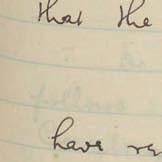 that the
have re